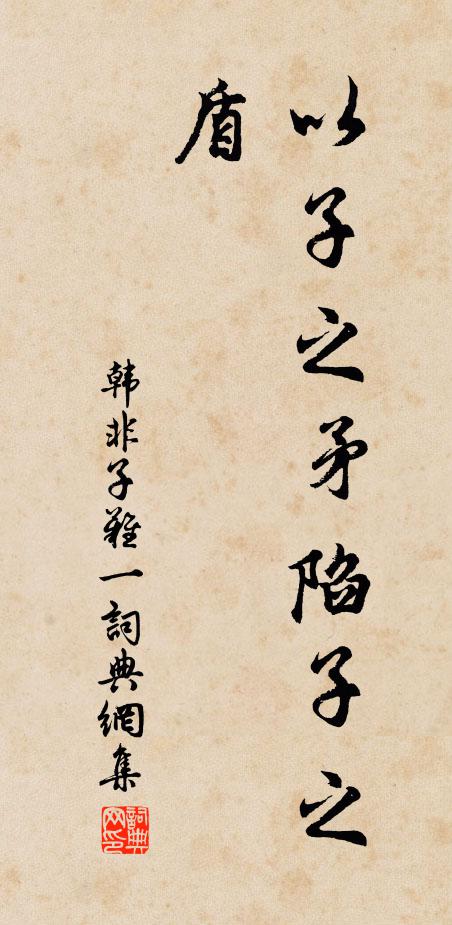 以子之矛陷子之
盾
韩非子難一詞典網集
詞典网印